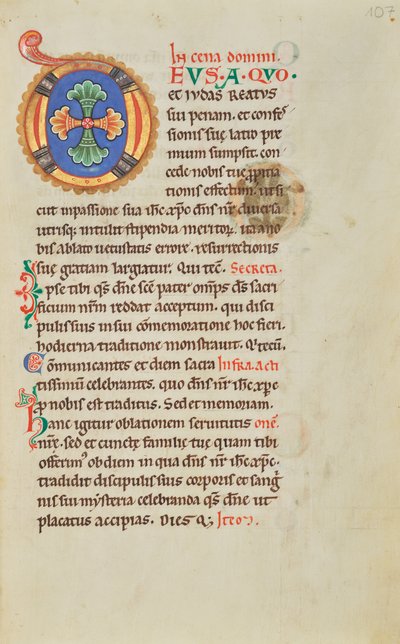 107
In cena domini.
DEUS. A. QUO.
et iudas Reatus
sui penam. et confes
sionis suę latro pre
mium sumpsit. con
cede nobis tuę ppitia
tionis effectum. ut si
cut in passione sua ihc xpc dns nr diuersa
utrisq; intulit stipendia meritoꝝ. ita no
bis ablato uetustatis errore. resurrectionis
suę gratiam largiatur. Qui tec. Secreta.
Ipse tibi qs dne sce pater omps ds sacri
ficium nrm reddat acceptum. qui disci
pulis suis in sui commemoratione hoc fieri
hodierna traditione monstrauit. Q. tecu.
Communicantes et diem sacra Infra. acti
tissimum celebrantes. quo dns nr ihc xpc
p nobis est traditus. Sed et memoriam.
Hanc igitur oblationem seruitutis onē.
nrę. sed et cunctę familię tuę quam tibi
offerim' ob diem in qua dns nr ihc xpc.
tradidit discipulis suis corporis et sangui
nis sui mysteria celebranda qs dne ut
placatus accipias. Diesq;